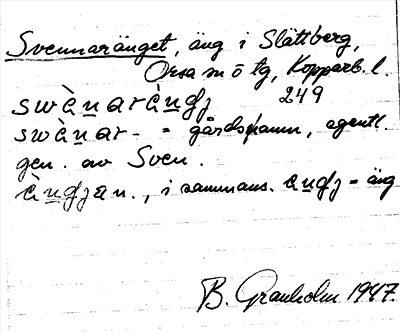 Svennaränget, äng i Slättberg,
Orsa sn ö tg, Kopparb. l.
swὰ̀narὰ̀ngj 249
swὰ̀nar- = gårdsnamn, egentl.
gen. av Sven.
ὰ̀ngjan., i sammans. angj = äng
B. Granholm 1947.